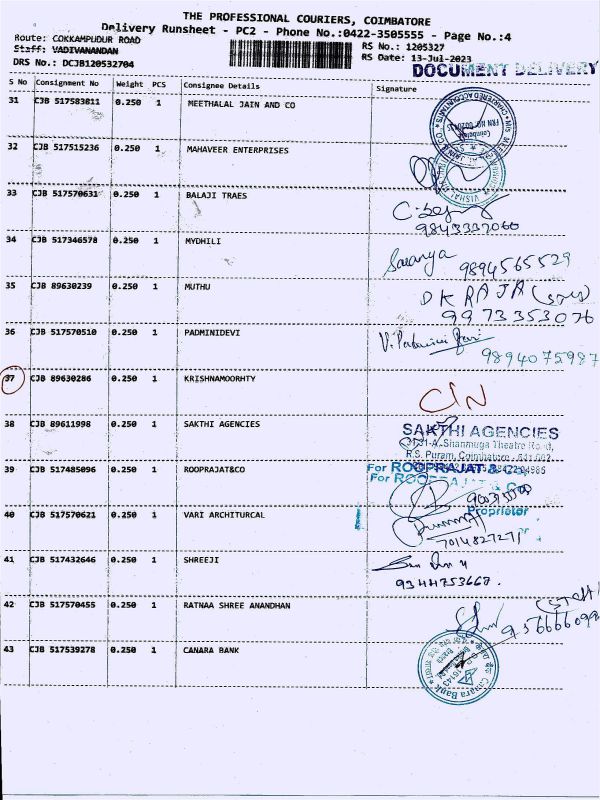 THE PROFESSIONAL COURIERS, COIMBATORE
Delivery Runsheet - PC2 - Phone No.:0422-3505555 - Page No.:4
Route: COKKAMPUDUR ROAD
Staff: VADIVANANDAN
RS No.: 1205327
DRS No.: DCJB120532704
RS Date: 13-Jul-2023
DOCUMENT DELIVERY
S No Consignment No Weight PCS Consignee Details Signature
31 CJB 517583811 0.250 1 MEETHALAL JAIN AND CO
32 CJB 517515236 0.250 1 MAHAVEER ENTERPRISES
33 CJB 517570631 0.250 1 BALAJI TRAES
9843337060
34 CJB 517346578 0.250 1 MYDHILI
Saranya 9894565529
35 CJB 89630239 0.250 1 MUTHU
DK RAJA
9973353076
36 CJB 517570510 0.250 1 PADMINIDEVI
9894075987
37 CJB 89630286 0.250 1 KRISHNAMOORHTY
C/N
38 CJB 89611998 0.250 1 SAKTHI AGENCIES
SAKTHI AGENCIES
31-A, Shanmuga Theatre Road,
R.S. Puram, Coimbatore - 641 002
39 CJB 517485096 0.250 1 ROOPRAJAT&CO
For ROOPRAJAT & Co
For ROOPRAJAT & Co
Proprietor
40 CJB 517570621 0.250 1 VARI ARCHITURCAL
7014827271
41 CJB 517432646 0.250 1 SHREEJI
9344753668.
42 CJB 517570455 0.250 1 RATNAA SHREE ANANDHAN
43 CJB 517539278 0.250 1 CANARA BANK
Canara Bank